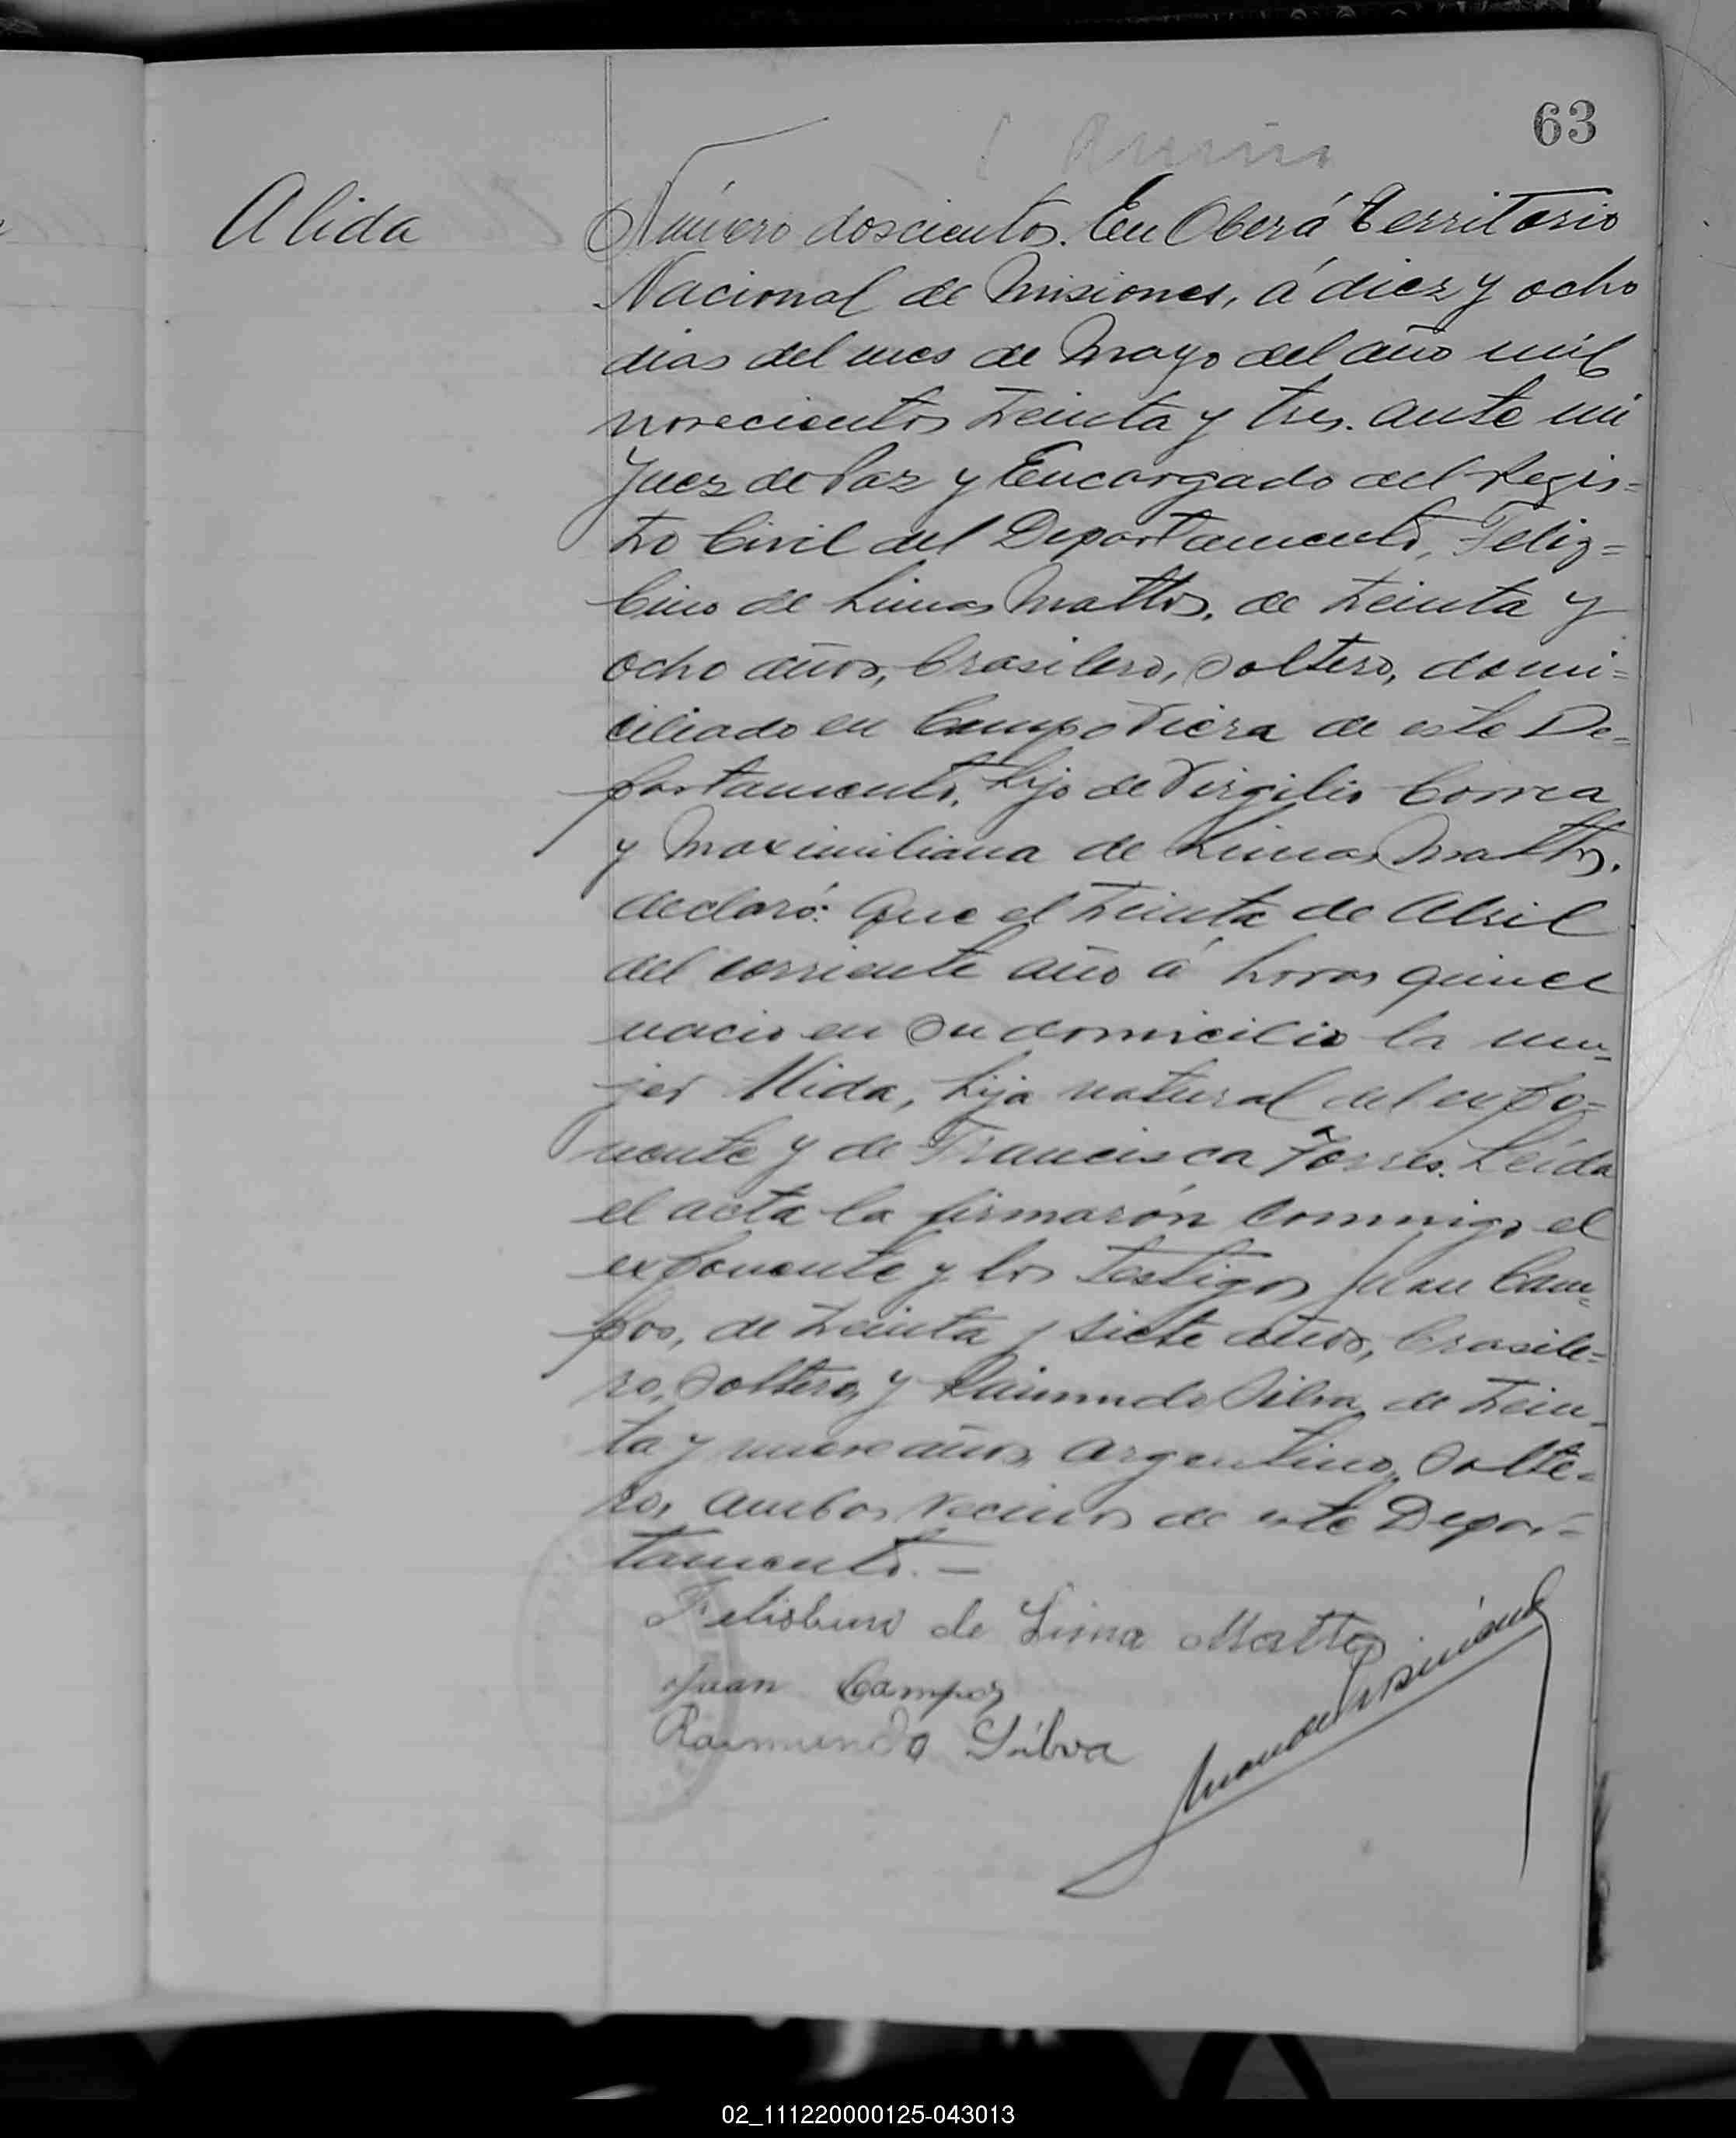 63
Alida
Número doscientos. En Oberá Territorio
Nacional de Misiones, á diez y ocho
dias del mes de Mayo del año mil
novecientos treinta y tres. ante mi
Juez de Paz y Encargado del Regis=
tro Civil del Departamento, Feliz=
bino de Limas Mattos, de treinta y
ocho años, brasilero, soltero, domi=
ciliado en Campo Viera de este De=
partamento, hijo de Virgilio Correa
y Maximiliana de Limas Mattos.
declaró: Que el treinta de Abril
del corriente año á horas quince
nacio en su domicilio la mu=
jer Alida, hija natural del expo=
nente y de Francisca Torres. Leída
el acta la firmarón conmigo el
exponente y los testigos Juan Cam=
pos, de treinta y siete años, brasile=
ro, soltero, y Raimundo Silva de trein=
ta y nueve años, argentino, solte=
ro, ambos vecinos de este Depar=
tamento. —
Felisbino de Lima Mattos
Juan Campos
Raimundo Silva
02_111220000125-043013